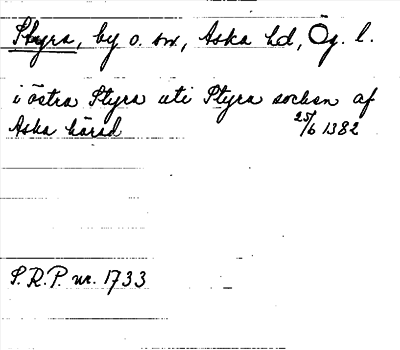 Styra, by o. sn, Aska hd, Ög. l.
i östra Styra uti Styra socken af
Aska härad 25/6 1382
S.R.P. nr. 1733